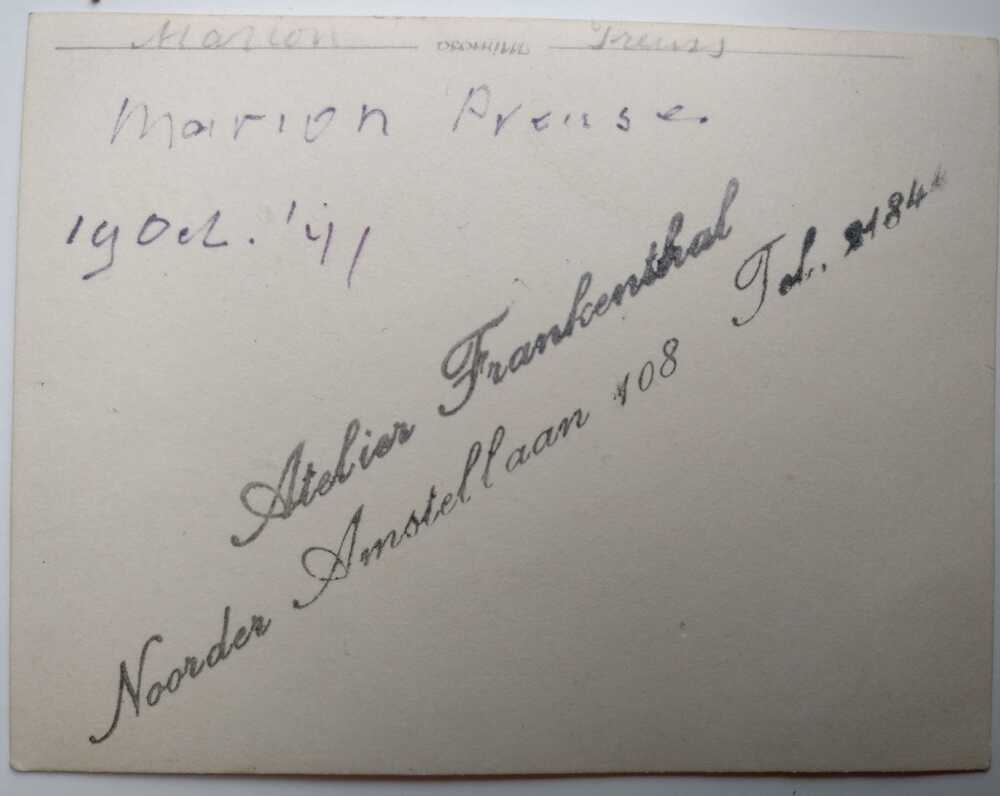 Marion Mimosa Preuss
Marion Preuse.
19 Oct. '41
Atelier Frankenthal
Noorder Amstellaan 108 Tel.